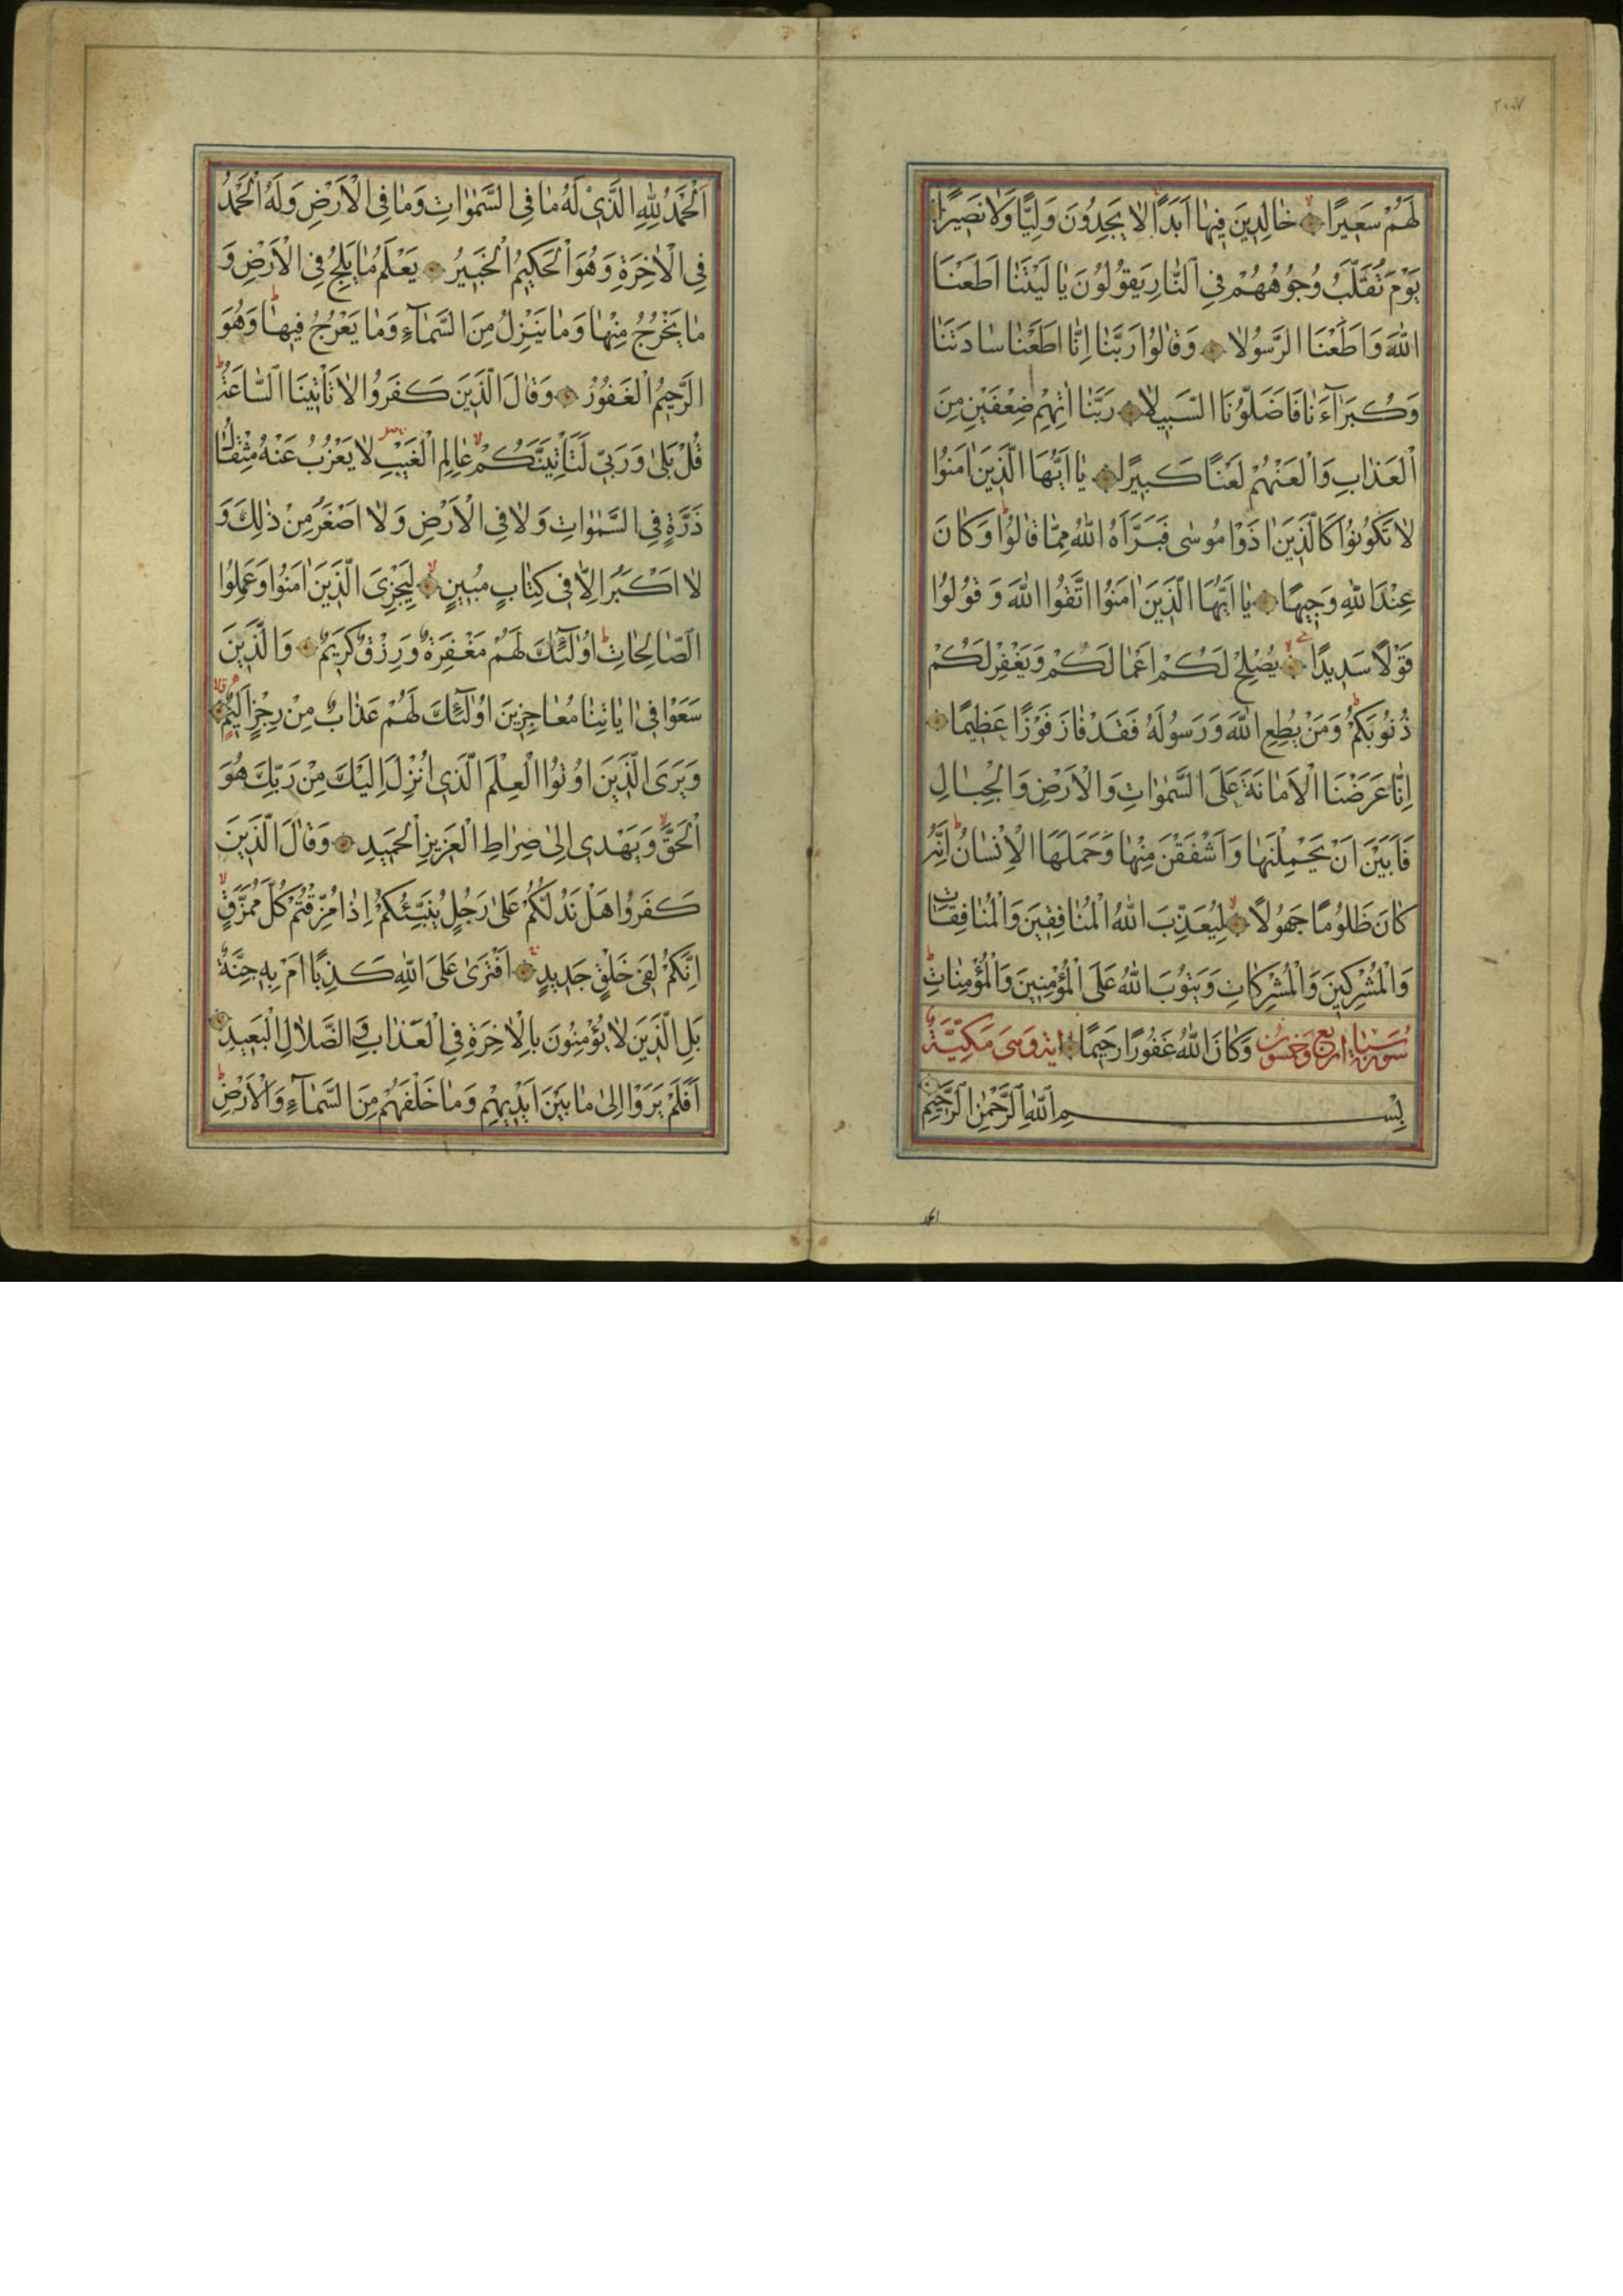 ٢٠٠٧
لَهُمْ سَعِيرًا خَالِدِينَ فِيهَا اَبَدًا لَا يَجِدُونَ وَلِيًّا وَلَا نَصِيرًا
يَوْمَ تُقَلَّبُ وُجُوهُهُمْ فِي النَّارِ يَقُولُونَ يَا لَيْتَنَا اَطَعْنَا
اللّٰهَ وَاَطَعْنَا الرَّسُولَا وَقَالُوا رَبَّنَا اِنَّا اَطَعْنَا سَادَتَنَا
وَكُبَرَاءَنَا فَاَضَلُّونَا السَّبِيلَا رَبَّنَا اٰتِهِمْ ضِعْفَيْنِ مِنَ
الْعَذَابِ وَالْعَنْهُمْ لَعْنًا كَبِيرًا يَا اَيُّهَا الَّذِينَ اٰمَنُوا
لَا تَكُونُوا كَالَّذِينَ اٰذَوْا مُوسٰى فَبَرَّاَهُ اللّٰهُ مِمَّا قَالُوا وَكَانَ
عِنْدَ اللّٰهِ وَجِيهًا يَا اَيُّهَا الَّذِينَ اٰمَنُوا اتَّقُوا اللّٰهَ وَقُولُوا
قَوْلًا سَدِيدًا يُصْلِحْ لَكُمْ اَعْمَالَكُمْ وَيَغْفِرْ لَكُمْ
ذُنُوبَكُمْ وَمَنْ يُطِعِ اللّٰهَ وَرَسُولَهُ فَقَدْ فَازَ فَوْزًا عَظِيمًا
اِنَّا عَرَضْنَا الْاَمَانَةَ عَلَى السَّمٰوَاتِ وَالْاَرْضِ وَالْجِبَالِ
فَاَبَيْنَ اَنْ يَحْمِلْنَهَا وَاَشْفَقْنَ مِنْهَا وَحَمَلَهَا الْاِنْسَانُ اِنَّهُ
كَانَ ظَلُومًا جَهُولًا لِيُعَذِّبَ اللّٰهُ الْمُنَافِقِينَ وَالْمُنَافِقَاتِ
وَالْمُشْرِكِينَ وَالْمُشْرِكَاتِ وَيَتُوبَ اللّٰهُ عَلَى الْمُؤْمِنِينَ وَالْمُؤْمِنَاتِ
سورة سبا اربع وخمسون وَكَانَ اللّٰهُ غَفُورًا رَحِيمًا اية وهي مَكِّيَّةٌ
بِسْمِ اللّٰهِ الرَّحْمٰنِ الرَّحِيمِ
الحمد
اَلْحَمْدُ لِلّٰهِ الَّذِي لَهُ مَا فِي السَّمٰوَاتِ وَمَا فِي الْاَرْضِ وَلَهُ الْحَمْدُ
فِي الْاٰخِرَةِ وَهُوَ الْحَكِيمُ الْخَبِيرُ يَعْلَمُ مَا يَلِجُ فِي الْاَرْضِ وَ
مَا يَخْرُجُ مِنْهَا وَمَا يَنْزِلُ مِنَ السَّمَاءِ وَمَا يَعْرُجُ فِيهَا وَهُوَ
الرَّحِيمُ الْغَفُورُ وَقَالَ الَّذِينَ كَفَرُوا لَا تَاْتِينَا السَّاعَةُ
قُلْ بَلٰى وَرَبِّي لَتَاْتِيَنَّكُمْ عَالِمِ الْغَيْبِ لَا يَعْزُبُ عَنْهُ مِثْقَالُ
ذَرَّةٍ فِي السَّمٰوَاتِ وَلَا فِي الْاَرْضِ وَلَا اَصْغَرُ مِنْ ذٰلِكَ وَ
لَا اَكْبَرُ اِلَّا فِي كِتَابٍ مُبِينٍ لِيَجْزِيَ الَّذِينَ اٰمَنُوا وَعَمِلُوا
الصَّالِحَاتِ اُولٰئِكَ لَهُمْ مَغْفِرَةٌ وَرِزْقٌ كَرِيمٌ وَالَّذِينَ
سَعَوْا فِي اٰيَاتِنَا مُعَاجِزِينَ اُولٰئِكَ لَهُمْ عَذَابٌ مِنْ رِجْزٍ اَلِيمٌ
وَيَرَى الَّذِينَ اُوتُوا الْعِلْمَ الَّذِي اُنْزِلَ اِلَيْكَ مِنْ رَبِّكَ هُوَ
الْحَقَّ وَيَهْدِي اِلٰى صِرَاطِ الْعَزِيزِ الْحَمِيدِ وَقَالَ الَّذِينَ
كَفَرُوا هَلْ نَدُلُّكُمْ عَلٰى رَجُلٍ يُنَبِّئُكُمْ اِذَا مُزِّقْتُمْ كُلَّ مُمَزَّقٍ
اِنَّكُمْ لَفِي خَلْقٍ جَدِيدٍ اَفْتَرٰى عَلَى اللّٰهِ كَذِبًا اَمْ بِهِ جِنَّةٌ
بَلِ الَّذِينَ لَا يُؤْمِنُونَ بِالْاٰخِرَةِ فِي الْعَذَابِ وَالضَّلَالِ الْبَعِيدِ
اَفَلَمْ يَرَوْا اِلٰى مَا بَيْنَ اَيْدِيهِمْ وَمَا خَلْفَهُمْ مِنَ السَّمَاءِ وَالْاَرْضِ